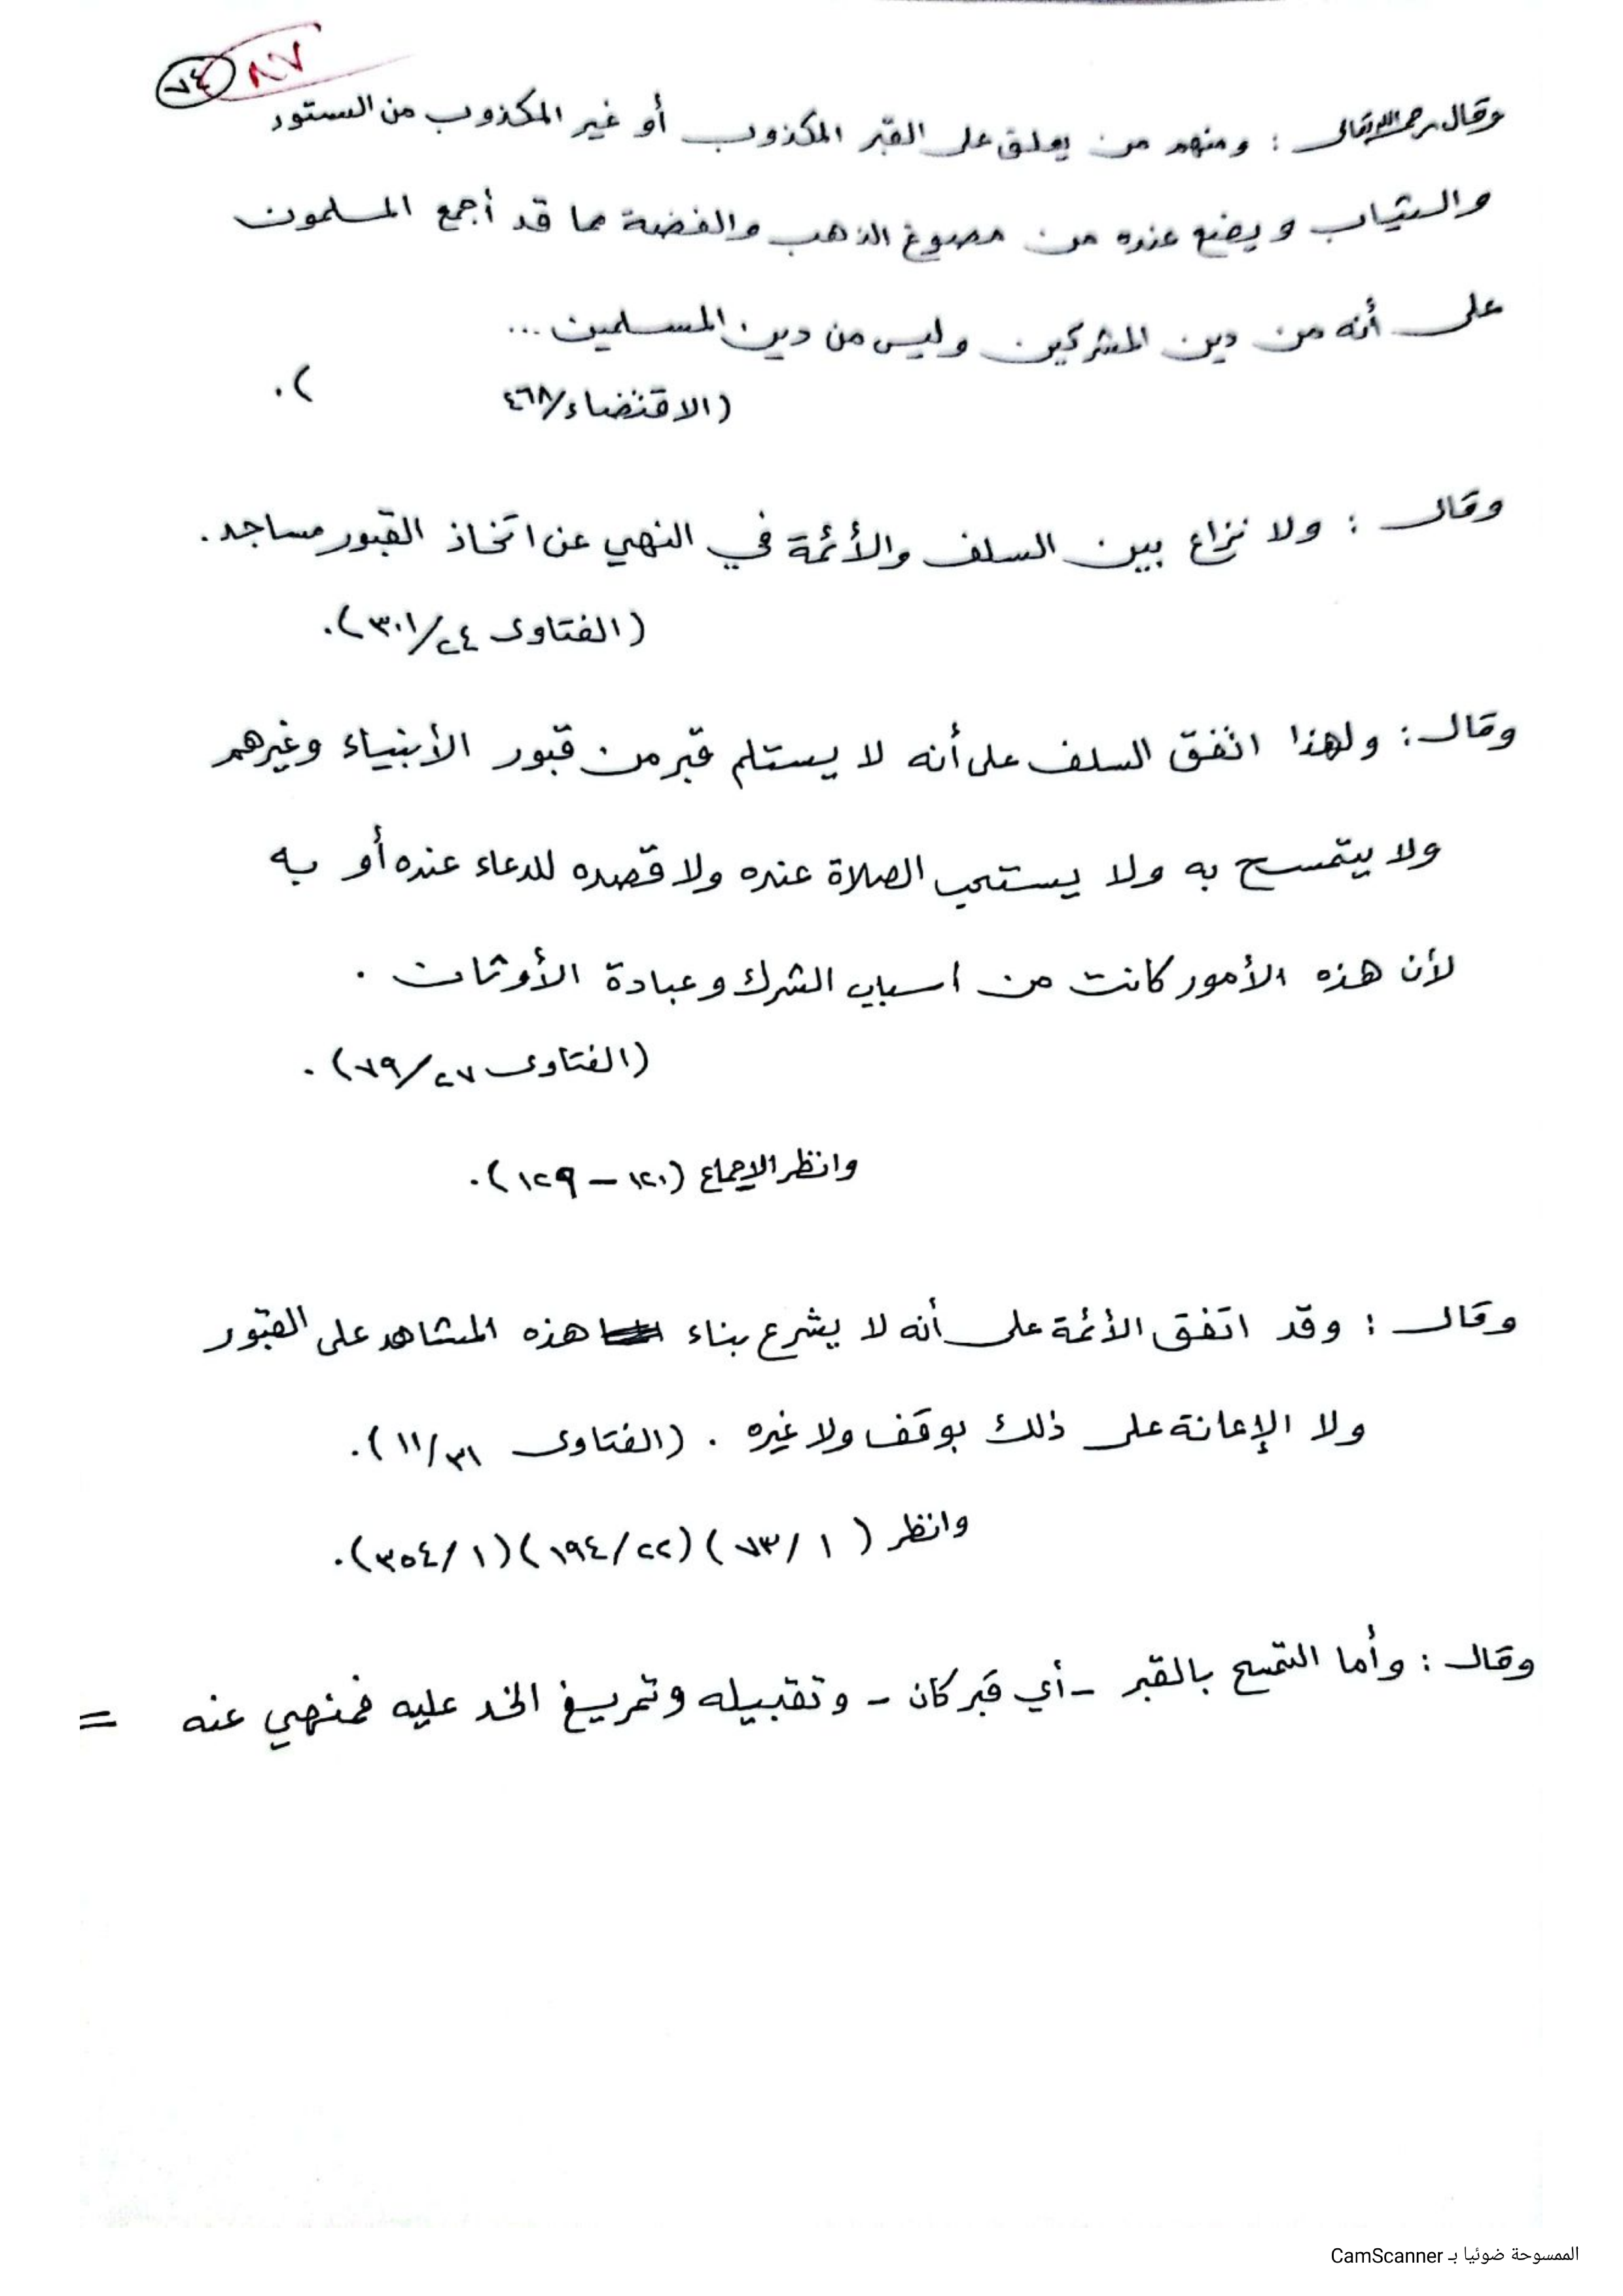 ٧٤ ٨٧
وقال رحمه الله تعالى : ومنهم من يعلق على القبر المكذوب أو غير المكذوب من الستور
والثياب ويضع عنده من مصوغ الذهب والفضة مما قد أجمع المسلمون
على أنه من دين المشركين وليس من دين المسلمين ...
(الاقتضاء/٤٦٨ ).
وقال : ولا نزاع بين السلف والأئمة في النهي عن اتخاذ القبور مساجد .
(الفتاوى ٢٤/٣٠١).
وقال : ولهذا اتفق السلف على أنه لا يستلم قبر من قبور الأنبياء وغيرهم
ولا يتمسح به ولا يستحب الصلاة عنده ولا قصده للدعاء عنده أو به
لأن هذه الأمور كانت من اسباب الشرك وعبادة الأوثان .
(الفتاوى ٢٧/٧٩) .
وانظر الإجماع (١٢٠ – ١٢٩).
وقال : وقد اتفق الأئمة على أنه لا يشرع بناء هذه المشاهد على القبور
ولا الإعانة على ذلك بوقف ولا غيره . (الفتاوى ٣١/١١).
وانظر (١/٧٣) (٢٢/١٩٤) (١/٣٥٤).
وقال : وأما التمسح بالقبر - أي قبر كان - وتقبيله وتمريغ الخد عليه فمنهي عنه =
الممسوحة ضوئيا بـ CamScanner